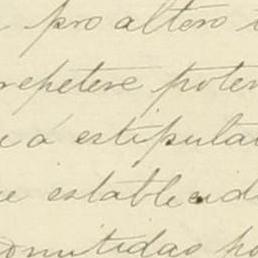 pro altero
repetere poten
á estipula
e establecid
omitidas po